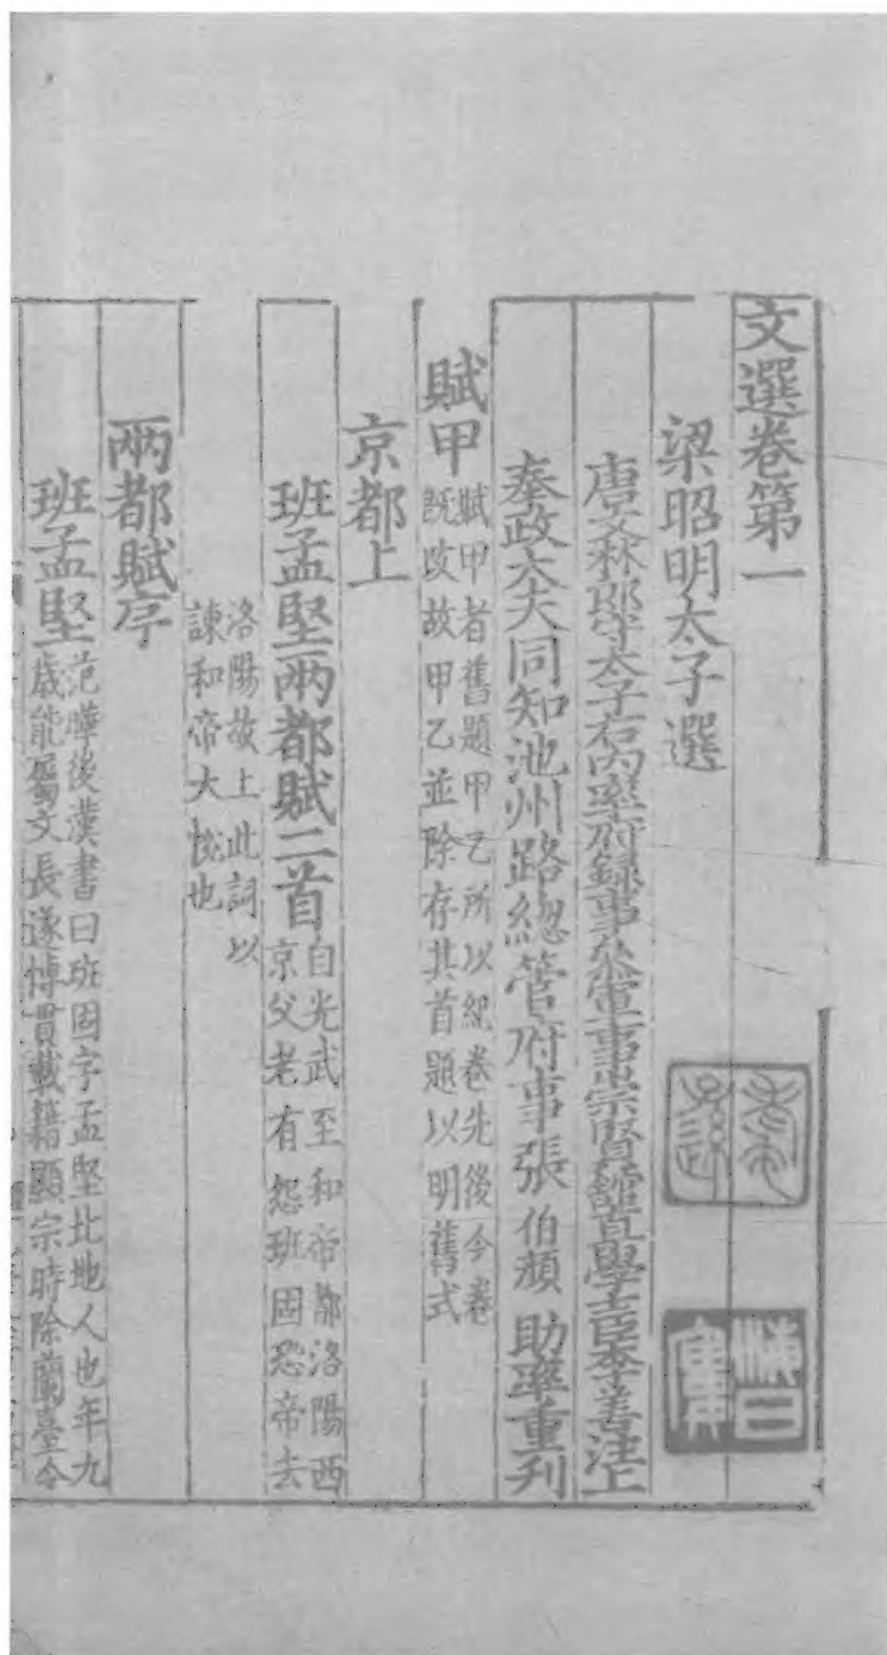 文選卷第一
梁昭明太子選
唐文林郎守太子右內率府録事參軍事崇賢館直學士臣李善注上
奉政大夫同知池州路緫管府事張伯顔助率重刊
賦甲
賦甲者舊題甲乙所以紀卷先後今卷
旣改故甲乙並除存其首題以明舊式
京都上
班孟堅兩都賦二首
自光武至和帝都洛陽西
京父老有怨班固恐帝去
洛陽故上此詞以
諫和帝大悅也
兩都賦序
班孟堅
范曄後漢書曰班固字孟堅北地人也年九
歲能屬文長遂博貫載籍顯宗時除蘭臺令